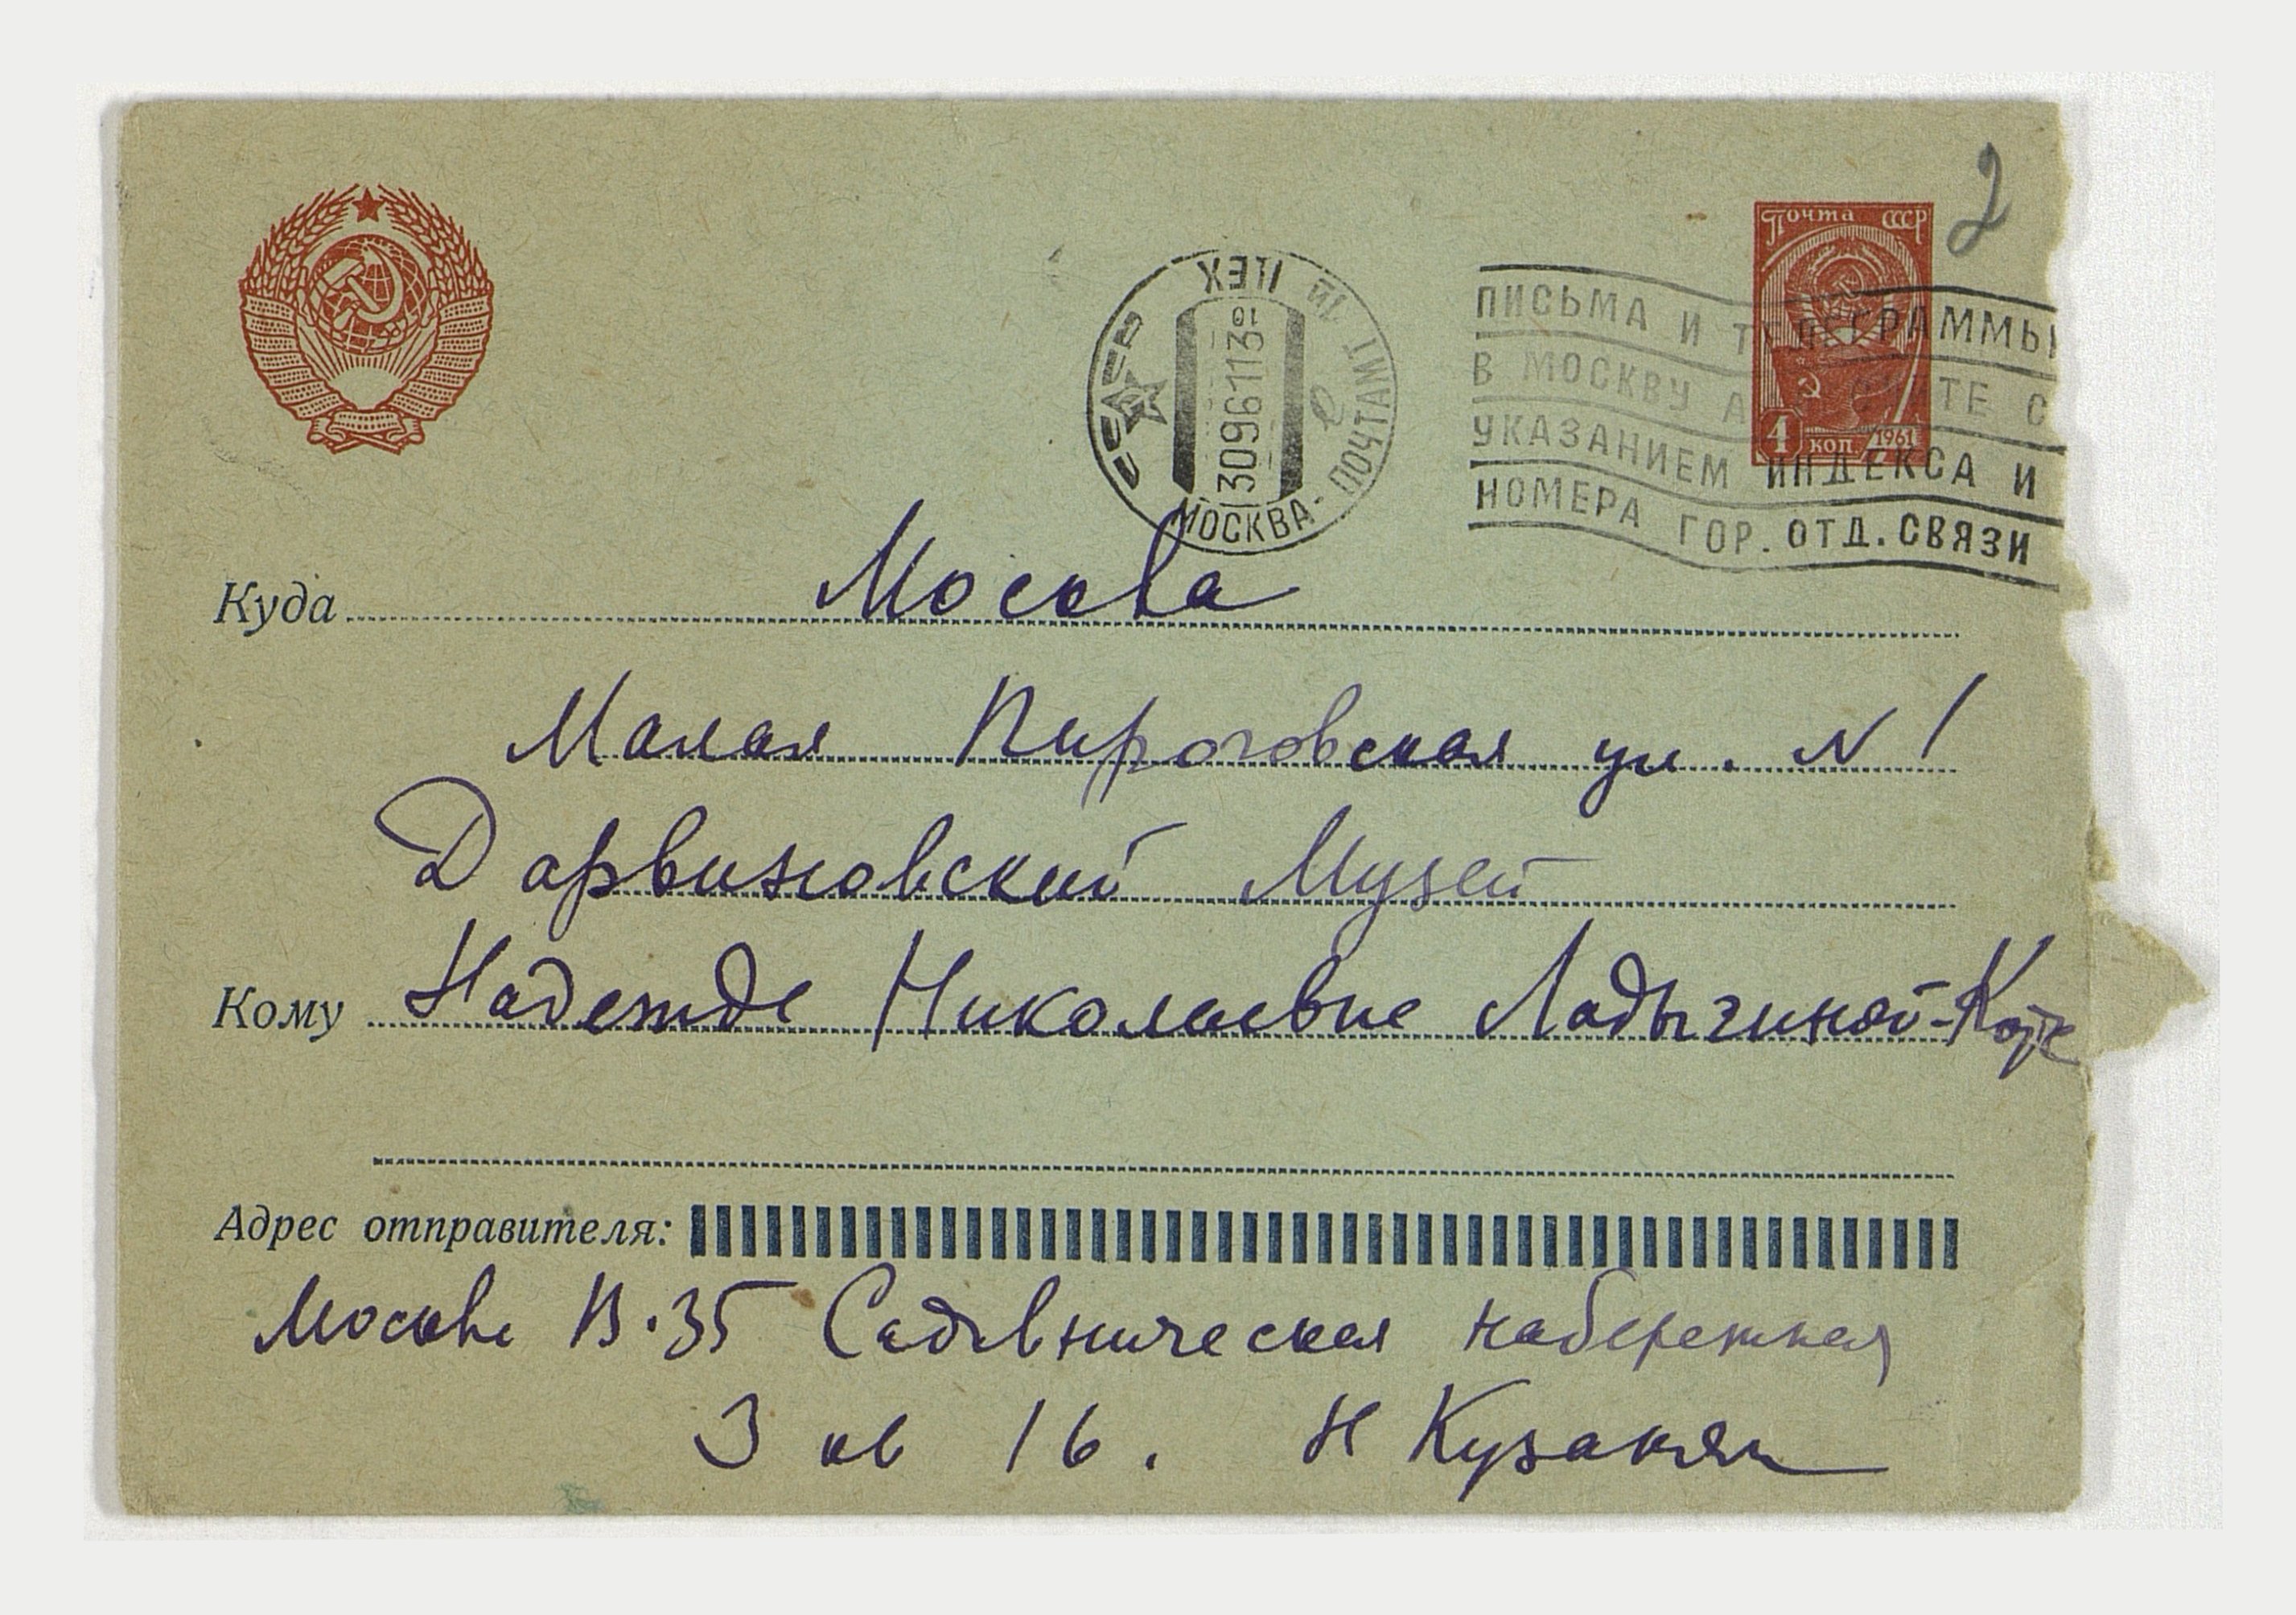 Почта СССР
2
4 коп. 1961
СССР
ЦЕХ
МОСКВА - ПОЧТАМТ
30961 13
10
ПИСЬМА И ТЕЛЕГРАММЫ
В МОСКВУ А ТЕ С
УКАЗАНИЕМ ИНДЕКСА И
НОМЕРА ГОР. ОТД. СВЯЗИ
Куда Москва
Малая Пироговская ул. N 1
Дарвиновский Музей
Кому Надежде Николаевне Ладыгиной-Котс
Адрес отправителя:
Москва В-35 Садовническая набережная
3 кв 16. Н